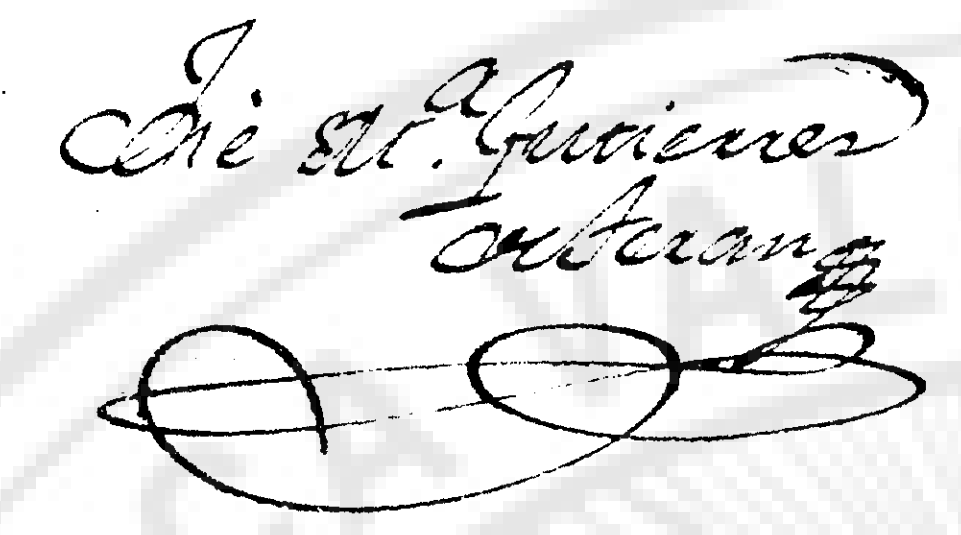 José Mª. Gutierrez
de Teran